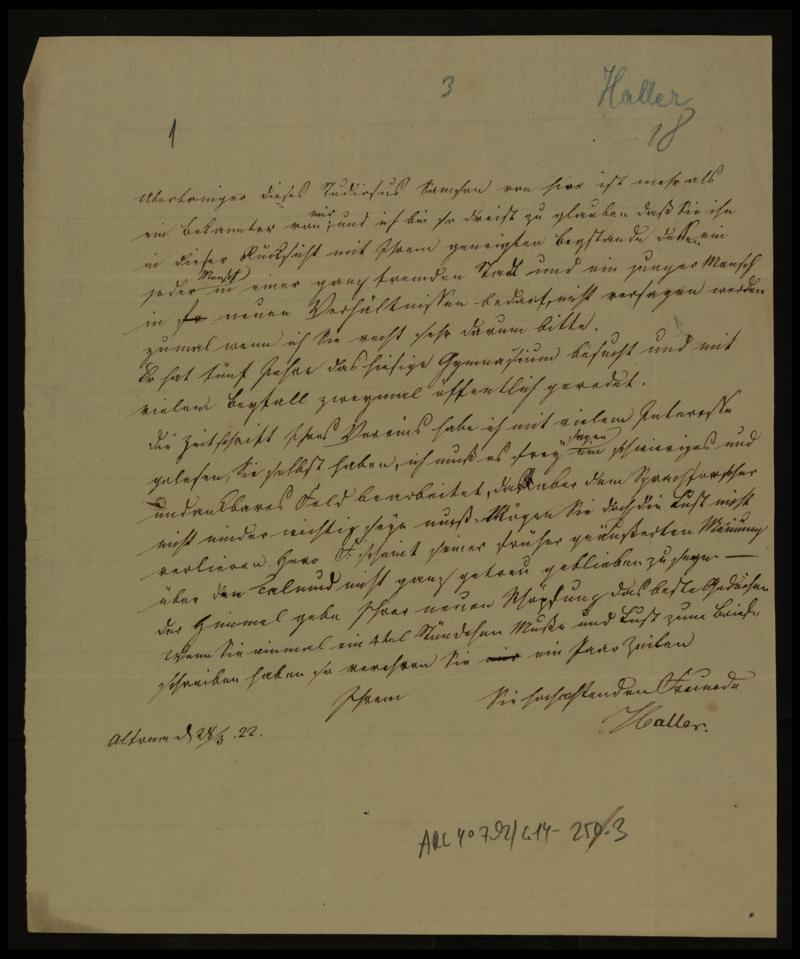 3
Haller
18
1
Überbringer dieses Studiosus Samson von hier ist mehr als
ein Bekannter von mir, und ich bin so dreist zu glauben daß Sie ihn
in dieser Rücksicht mit Ihrem geneigten Beystande dessen ein
jeder Mensch in einer ganz fremden Stadt und ein junger Mensch
in neuen Verhältnissen bedarf, nicht versagen werden
zumal wenn ich Sie recht sehr darum bitte.
Er hat fünf Jahre das hiesige Gymnasium besucht und mit
vielem Beyfall zweymal öffentlich geredet.
Die Zeitschrift Ihres Vereins habe ich mit vielem Interesse
gelesen, Sie selbst haben, ich muß es frey sagen ein schwieriges und
undankbares Feld bearbeitet, das aber dem Sprachforscher
nicht minder wichtig seyn muß. Mögen Sie doch die Lust nicht
verlieren. Herr F. scheint seiner früher geäußerten Meinung
über den Talmud nicht ganz getreu geblieben zu seyn —
der Himmel gebe Ihrer neuen Schöpfung das beste Gedeihen
Wenn Sie einmal ein 4tel Stündchen Muße und Lust zum Brief-
schreiben haben so verehren Sie mir ein Paar Zeilen
Ihrem Sie hochachtenden Freunde
Haller.
Altona d 28/3. 22.
ARC 4° 792/C14- 250-3